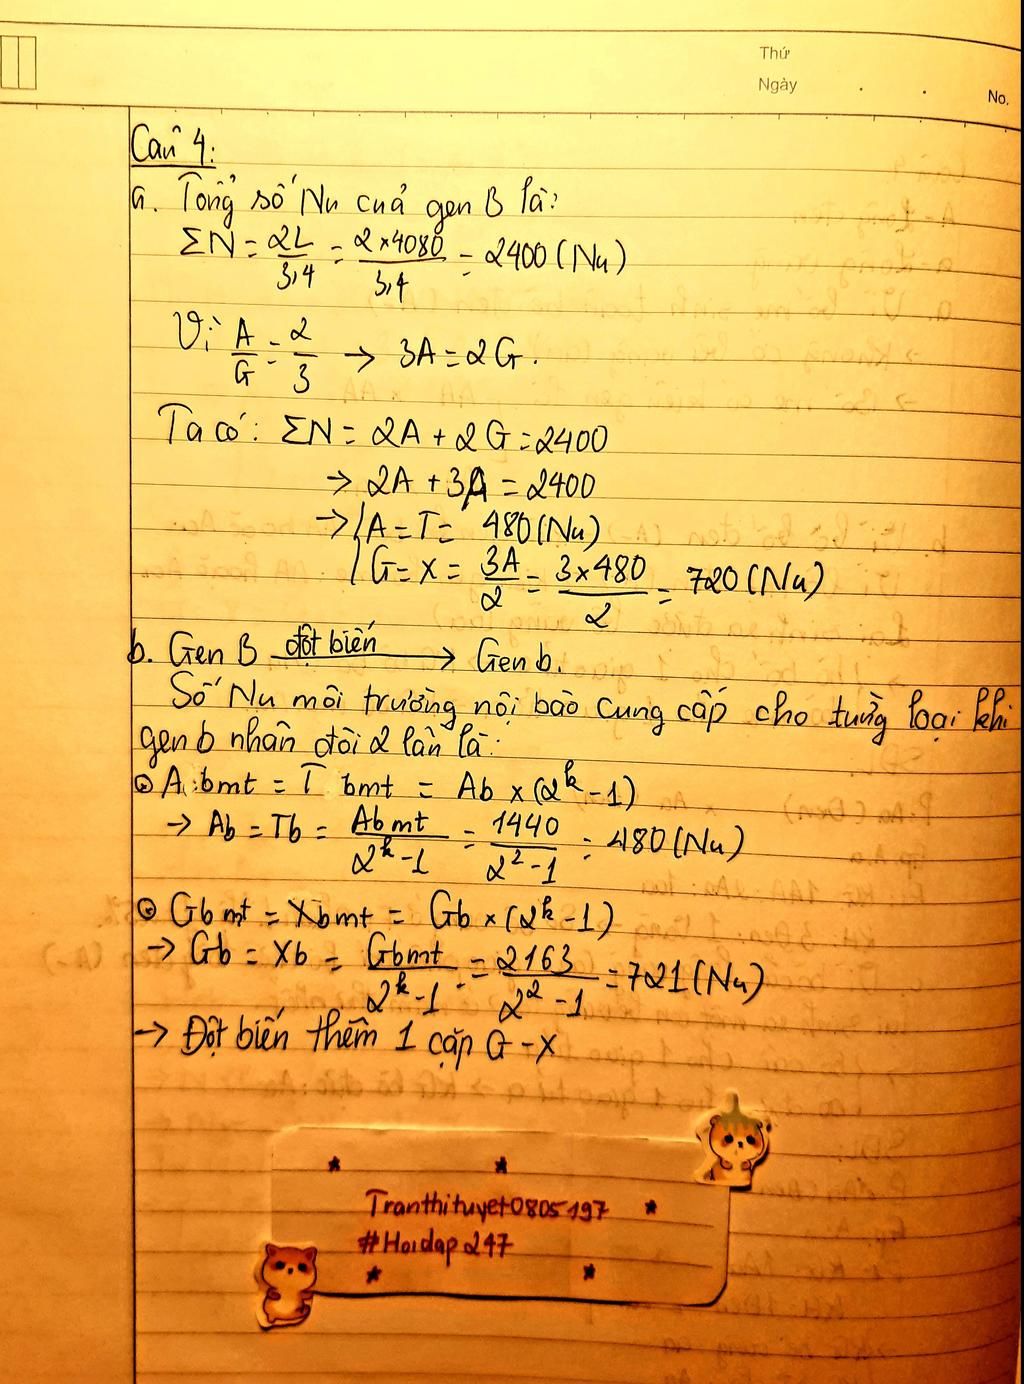 Thứ
Ngày
No.
Câu 4:
a. Tổng số Nu cuả gen B là:
ΣN = 2L/3,4 = 2×4080/3,4 = 2400 (Nu)
Vì A/G = 2/3 → 3A = 2G.
Ta có: ΣN = 2A + 2G = 2400
→ 2A + 3A = 2400
→ A = T = 480 (Nu)
G = X = 3A/2 = 3×480/2 = 720 (Nu)
b. Gen B đột biến → Gen b.
Số Nu môi trường nội bào cung cấp cho từng loại khi
gen b nhân đôi 2 lần là:
A bmt = T bmt = Ab × (2^k - 1)
→ Ab = Tb = Abmt/2^k - 1 = 1440/2^2 - 1 = 480 (Nu)
Gbmt = Xbmt = Gb × (2^k - 1)
→ Gb = Xb = Gbmt/2^k - 1 = 2163/2^2 - 1 = 721 (Nu)
→ Đột biến thêm 1 cặp G - X
Tranthituyet0805197
#Hoidap247